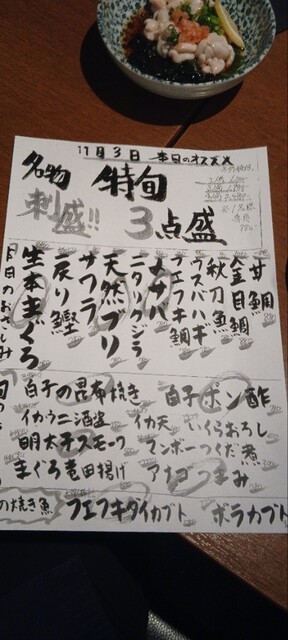 11月3日 本日のオススメ
名物 刺盛!!
特旬
3点盛
甘鯛
金目鯛
秋刀魚
ウスバハギ
フエフキ鯛
メサバ
ニタリクジラ
天然ブリ
サワラ
戻り鰹
生本まぐろ
本日のおさしみ
白子の昆布焼き 白子ポン酢
イカウニ酒盗 イカ天 いくらおろし
明太子スモーク マンボーつくだ煮
まぐろ竜田揚げ アナゴつまみ
の焼き魚 フエフキダイカブト ボラカブト